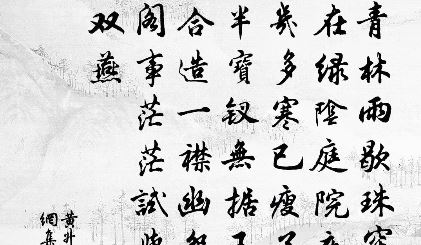 青林雨歇珠
在绿陰庭院
幾多寒已瘦
半寶釵無據
合造一襟幽
阁事茫茫試
双燕
黄升
網集